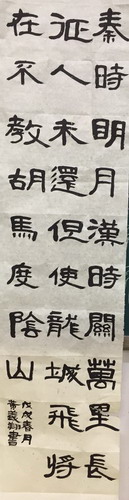 秦時明月漢時關萬里長
征人未還但使龍城飛將
在不教胡馬度陰山
戊戌春月
義翔書